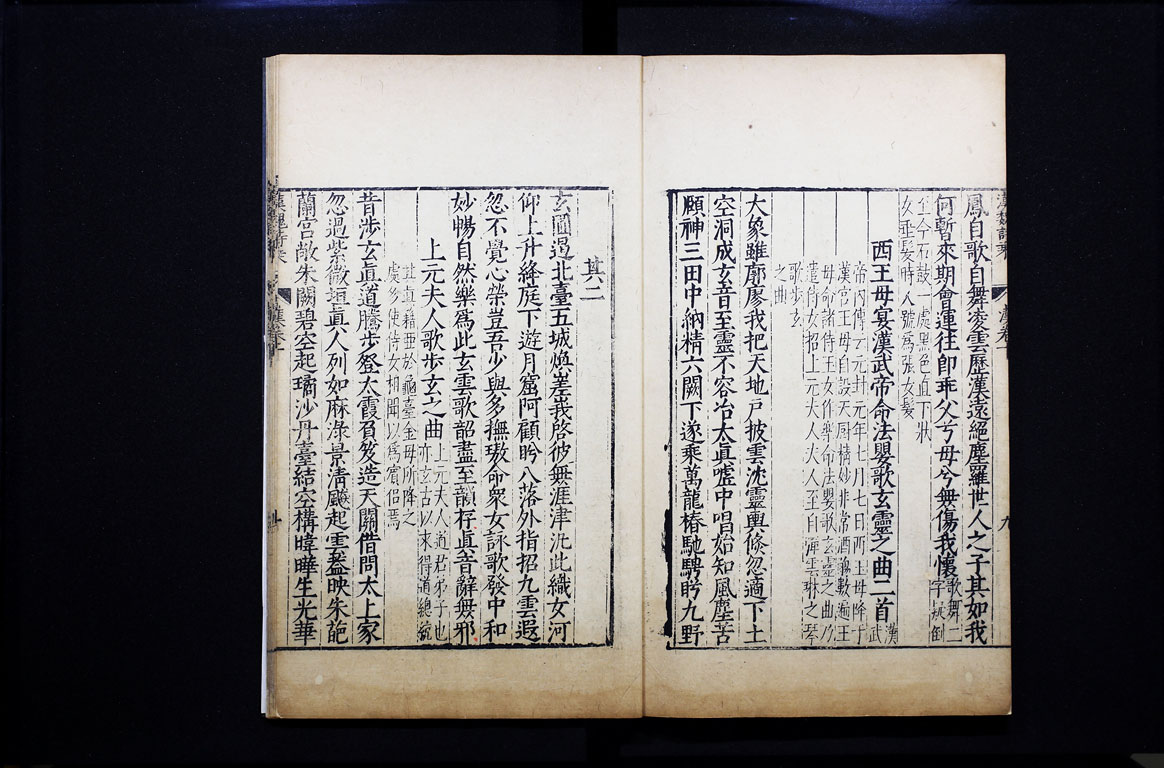 漢魏詩乘
漢卷一
九
鳳自歌自舞凌雲歷漢遠絕塵羅世人之子其如我
何暫來期會運往即乖父兮母兮無傷我懷歌舞二
字疑倒
至今石鼓一處黑色直下狀
女垂髮時人號為張女髮
西王母宴漢武帝命法嬰歌玄靈之曲二首漢
武
帝內傳云元封元年七月七日西王母降于
漢宮王母自設天厨精妙非常酒觴數遍王
母命諸侍玉女作樂命法嬰歌玄靈之曲乃
遣侍女招上元夫人夫人至自彈雲琳之琴
歌步玄
之曲
大象雖廓廖我把天地戶披雲沈靈輿倐忽適下土
空洞成玄音至靈不容冶太真噓中唱始知風塵苦
頤神三田中納精六闕下遂乘萬龍椿馳騁眄九野
其二
玄圃遏北臺五城煥嵳我啓彼無涯津汎此織女河
仰上升絳庭下遊月窟阿顧眄八落外指招九雲遐
忽不覺心榮豈吾少與多撫璈命衆女詠歌發中和
妙暢自然樂為此玄雲歌韶盡至韻存真音辭無邪
上元夫人歌步玄之曲上元夫人道君弟子也
亦玄古以來得道總統
其真籍亞於龜臺金母所降之
處多使侍女相聞以為賓侶焉
昔涉玄真道騰步登太霞負笈造天關借問太上家
忽過紫微垣真人列如麻淥景清飇起雲蓋映朱葩
蘭宮敞朱闕碧空起璚沙丹臺結空構暐曄生光華